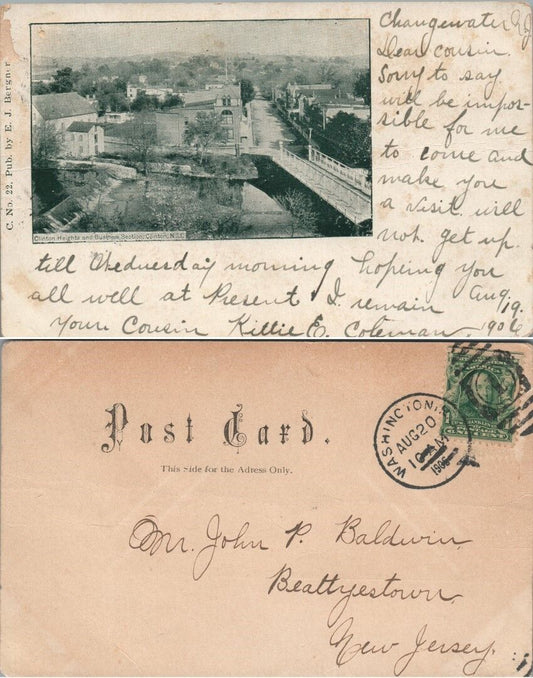 C. No. 22. Pub. by E. J. Bergner
Clinton Heights and Business Section, Clinton, N.J.
Changewater N.J
Dear cousin.
Sorry to say
will be impos-
sible for me
to come and
make you
a visit. will
not get up.
till Wednesday morning hopeing you
all well at Present I remain Aug, 19.
Your Cousin Killie E. Coleman. 1906
Post Card.
This side for the Adress Only.
WASHINGTON, N.J.
AUG 20
10 AM
1906
Mr. John P. Baldwin,
Beattyestown,
New Jersey.